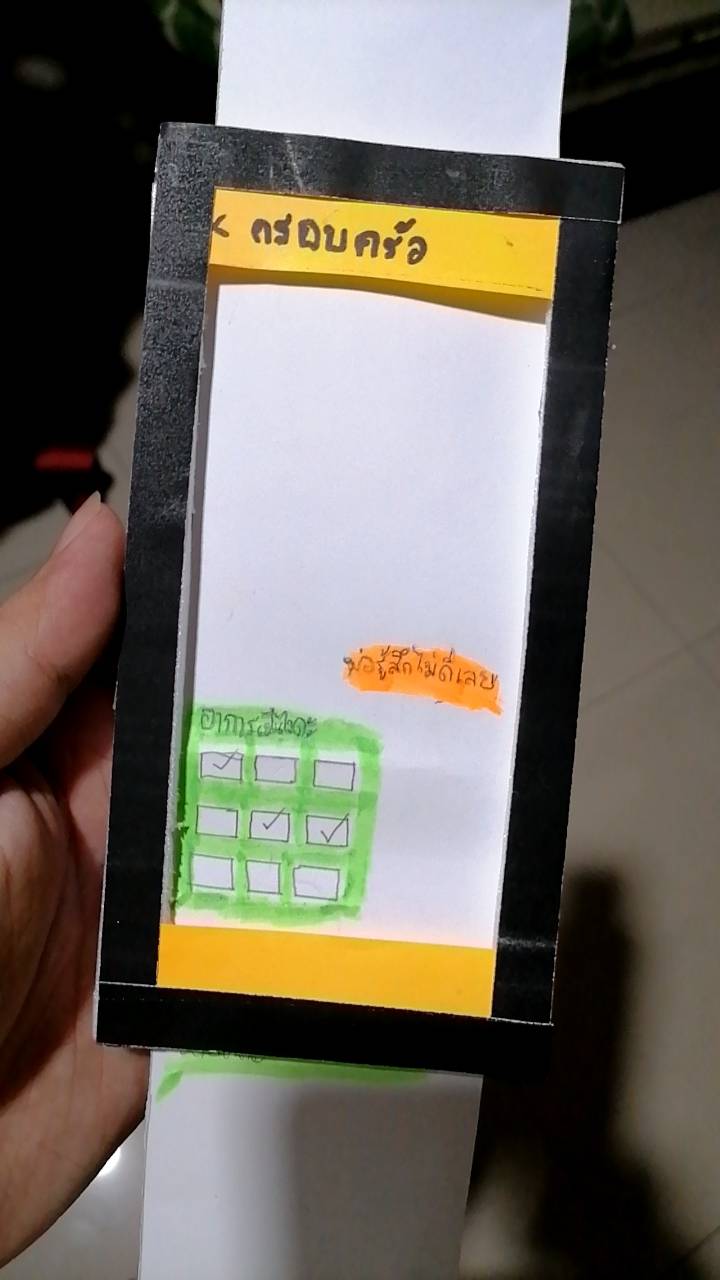 < ครอบครัว
พ่อรู้สึกไม่ดีเลย
อาการมีไหม